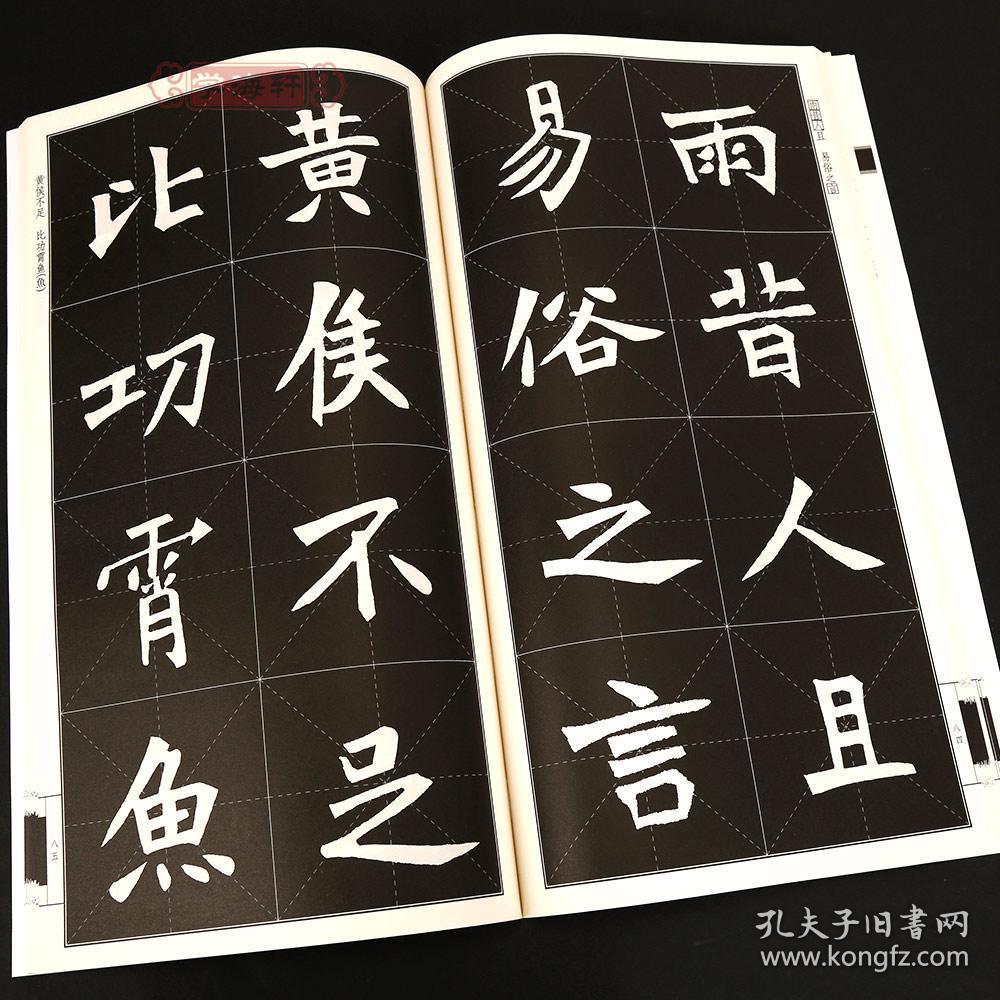 学海轩
人且 易俗之
雨昔人且
易俗之言
八四
黄侯不足
比功霄魚
黄侯不足 比功霄鱼(魚)
八五
孔夫子旧書网
www.kongfz.com